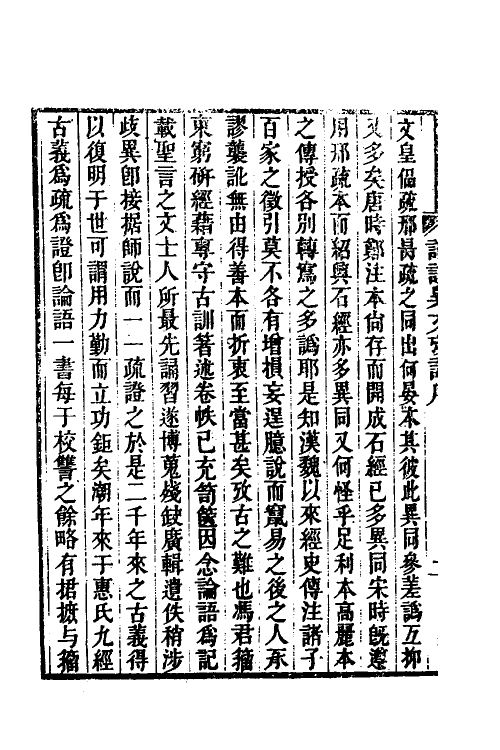 文皇偘疏邢昺疏之同出何晏本其彼此異同參差譌互抑
又多矣唐時鄭注本尙存而開成石經已多異同宋時旣遵
用邢疏本而紹興石經亦多異同又何怪乎足利本高麗本
之傳授各別轉寫之多譌耶是知漢魏以來經史傳注諸子
百家之徵引莫不各有增損妄逞臆說而竄易之後之人承
謬襲訛無由得善本而折衷至當甚矣攷古之難也馮君籀
東窮硏經藉專守古訓著述卷帙已充笥篋因念論語爲記
載聖言之文士人所最先誦習遂博蒐殘缺廣輯遺佚稍涉
歧異卽接据師說而一一疏證之於是二千年來之古義得
以復明于世可謂用力勤而立功鉅矣潮年來于惠氏九經
古義爲疏爲證卽論語一書每于校讐之餘略有捃摭与籀